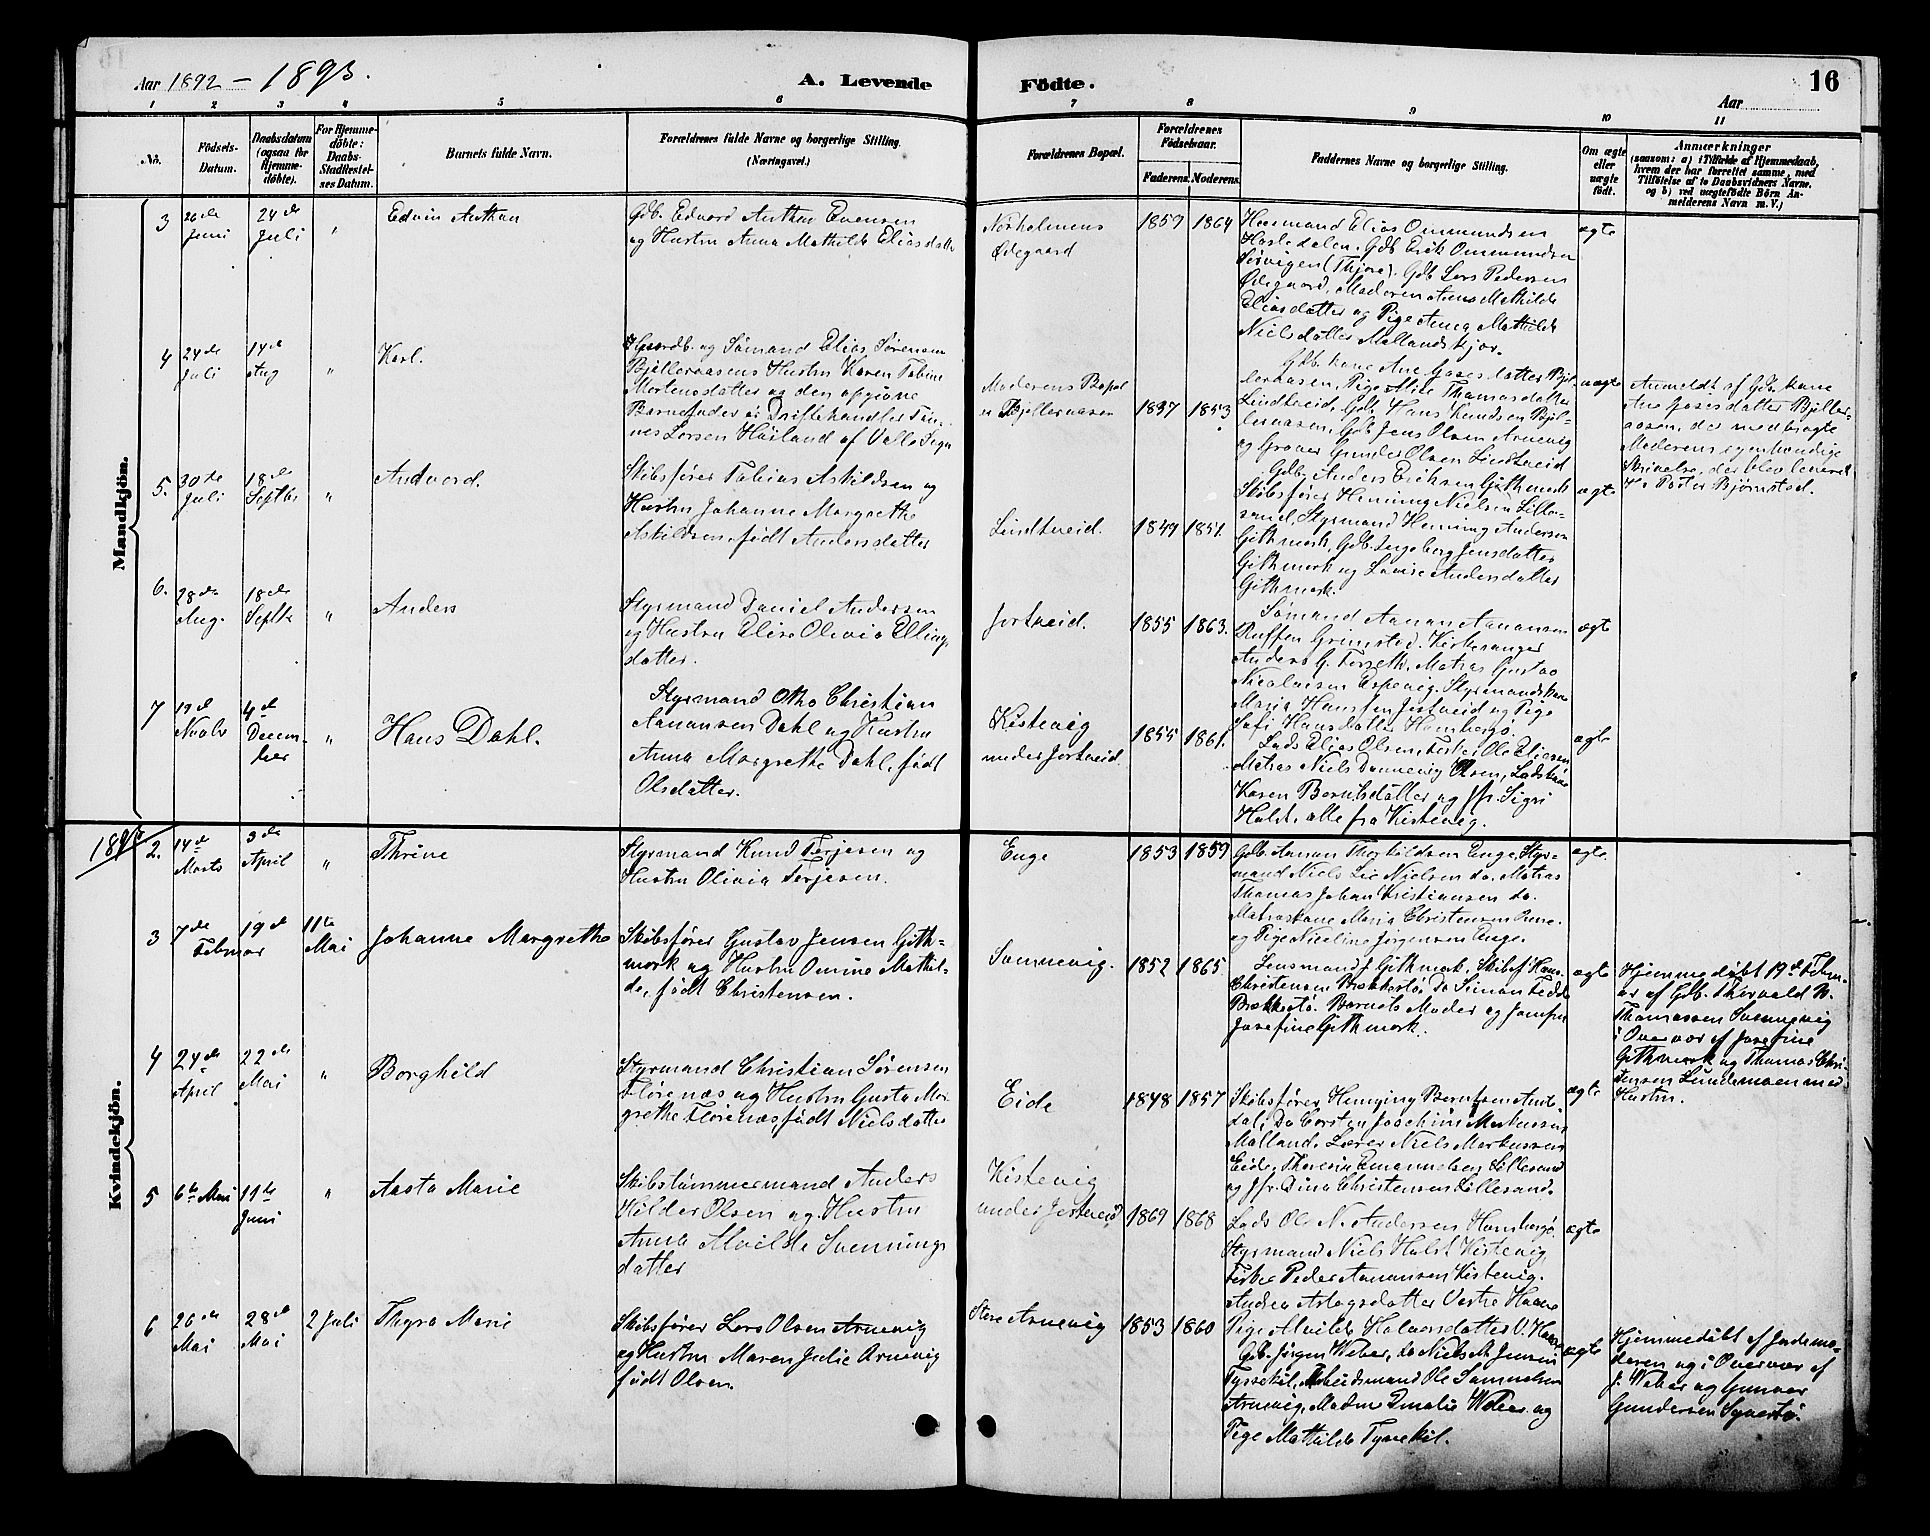 Aar 1892 – 1893.
A. Levende
Fødte.
16
Aar
1 2 3 4 5 6 7 8 9 10 11
No.
Fødsels-
Datum.
Daabsdatum
(ogsaa for
Hjemme-
døbte).
For Hjemme-
døbte:
Daabs-
Stadfæstel-
ses Datum.
Barnets fulde Navn.
Forældrenes fulde Navne og borgerlige Stilling.
(Næringsvei.)
Forældrenes Bopæl.
Forældrenes
Fødselsaar.
Faderens. Moderens.
Faddernes Navne og borgerlige Stilling.
Om ægte
eller
uægte
født.
Anmærkninger
(saasom: a) i Tilfælde af Hjemmedaab,
hvem der har forrettet samme, med
Tilføielse af to Daabsvidners Navne,
og b) ved uægtefødte Børn An-
melderens Navn m. V.)
Mandkjøn.
3
26de
Juni
24de
Juli
"
Edvin Anthon
Gdb. Edvard Anthon Evensen
og Hustru Anna Mathilde Eliasdatter
Norholmens
Ødegaard
1857 1864
Huusmand Elias Ommundsen
Hasledalen. Gdb. Erik Ommundsen
Sørvigen (Thjøre). Gdb. Lars Pedersen
Ødegaard, Moderen Anna Mathilde
Eliasdatter og Pige Anna Mathilde
Nielsdatter Mallandskjær.
ægte
4
24de
Juli
14de
Aug
"
Karl.
og Sømand Elias Sørensen
Bjelleraasens Hustru Karen Tobine
Mortensdatter og den opgivne
Barnefader er Driftehandler Tøn-
nes Larsen Høiland af Valle Sogn
Moderens Bopæl
er Bjelleraasen
1837 1853
Gdb. kone Ane Aasesdatter Bjel-
leraasen, Pige Alise Thomasdatter
Lindtveid, Gdb. Hans Knudsen Bjel-
leraasen, Gdb. Jens Olsen Arnevig
og Graver Gunder Olsen Lindtveid
uægte
Anmeldt af Gdb. kone
Ane Aasesdatter Bjeller-
aasen, der medbragte
Moderens egenhændige
Skrivelse, der blev leveret
Pastor Bjørnstad.
5.
30te
Juli
18de
Septbr
"
Andvord.
Skibsfører Tobias Askildsen og
Hustru Johanne Margrethe
Askildsen, født Andersdatter
Lindtveid.
1849 1851.
Gdb. Anders Eriksen Githmark
Skibsfører Henning Nielsen Lille-
sand, Styrmand Henning Andersen
Githmark, Gdb. Ingeborg Jensdatter
Githmark og Lovise Andersdatter
Githmark.
ægte
6.
28de
Aug.
18de
Septbr
"
Anders
Styrmand Daniel Andersen
og Hustru Elise Olivia Ellings
datter.
Jortveid.
1855 1863.
Sømand Aanon Aanonsen
Ruffen Grimstad. Kirkesanger
Anders G. Torseth. Matros Gustav
Nicolaisen Espevig, Styrmandskone
Maria Hansen Jortveid og Pige
Sofi Hansdatter Homborgø.
ægte
7
19de
Novbr
4de
Decem-
ber
"
Hans Dahl.
Styrmand Otto Christian
Aanonsen Dahl og Hustru
Anna Margrethe Dahl, født
Olsdatter.
Kistevig
under Jortveid.
1855 1861.
Lods Elias Olsen. Fisker Ole Eliesen
Matros Niels Dannevig Olsen, Lodskone
Karen Berntsdatter og Jfr. Sigri
Holst, alle fra Kistevig.
ægte
Kvindekjøn.
2.
14de
Marts
3de
April
"
Thrine
Styrmand Knud Terjesen og
Hustru Olivia Terjesen.
Enge
1853 1859
Gdb. Aanon Thorkildsen Enge, Styr-
mand Niels Lie Nielsen do. Matros
Thomas Johan Kristiansen do.
Matroskone Maria Christensen
og Pige Nicoline Jørgensen Enge.
ægte
3
7de
Februar
19de
11te
Mai
Johanne Margrethe
Skibsfører Gustav Jensen Gith-
mark og Hustru Omine Mathil-
de, født Christensen.
Sannevig.
1852 1865.
Lensmand J. Githmark, Skibsf. Hans
Christensen Brekkestø Do Simon Tedde
Brekkestø. Barnets Moder og Jomfru
Josefine Githmark.
ægte
Hjemmedøbt 19de Febru-
ar af Gdb. Thorvald N.
Thomassen Sannevig
i Overvær af Josefine
Githmark og Thomas Chri-
stensen Lundemoen med
Hustru.
4
24de
April
22de
Mai
"
Borghild
Styrmand Christian Sørensen
Florenæs og Hustru Gusta Mar-
grethe Florenæs, født Nielsdatter
Eide
1848 1857
Skibsfører Henning Berntsen
Do Corsten Joachim Markussen
Malland. Lærer Niels Markussen
Eide, Lillesand
og Jfr. Dina Christensen Lillesand.
ægte
5
6te Mai
11te
Juni
"
Aasta Marie
Skibstømmermand Anders
Holder Olsen og Hustru
Anna Alvilde Svennings
datter
Kistevig
under Jortveid
1869 1868
Lods Ole N. Andersen Homborgø
Styrmand Niels Holst Kistevig,
Fisker Peder Aanonsen Kistevig.
Andrea Aslagsdatter Vestre Haave
Pige Alvilde Halvorsdatter V. Haave
ægte
6
26de
Mai
28de
Mai
2 Juli
Thyra Marie
Skibsfører Lars Olsen Arnevig
og Hustru Maren Julie Arnevig
født Olsen.
Store Arnevig
1853 1860
Gdb. Jørgen Weber, do Niels M. Jensen
Tyssekil, Arbeidsmand Ole Samuelsen
Arnevig, Madme Emalie Weber og
Pige Mathilde Tyssekil.
ægte
Hjemmedøbt af Jordemo-
deren og i Overvær af
J. Weber og Gunvor
Gundersen